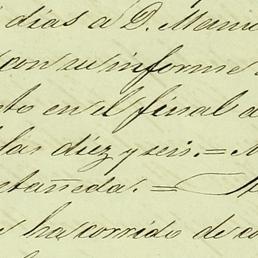 dias a D. Manu
con su informe
to en el final d
las diez y seis. = 
tañeda. =
ha corrido de co